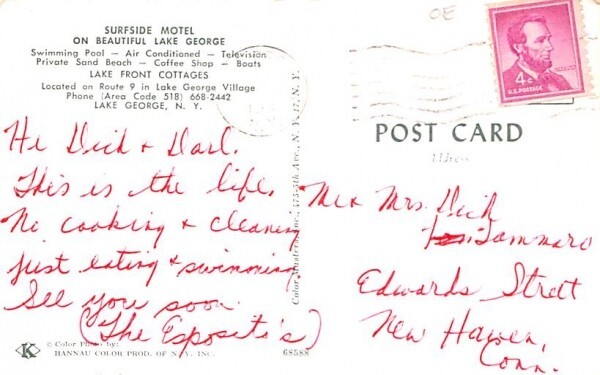 SURFSIDE MOTEL
ON BEAUTIFUL LAKE GEORGE
Swimming Pool — Air Conditioned — Television
Private Sand Beach — Coffee Shop — Boats
LAKE FRONT COTTAGES
Located on Route 9 in Lake George Village
Phone (Area Code 518) 668-2442
LAKE GEORGE, N. Y.
Hi Dick +
This is the life.
No cooking & cleaning
just eating & swimming.
See you soon.
(The Esposito's)
© Color Photo by:
K HANNAU COLOR PROD. OF N. Y. INC.
68588
OE
4¢
U.S. POSTAGE
POST CARD
Mr & Mrs. Dick
Edwards Street
New Haven,
Conn.